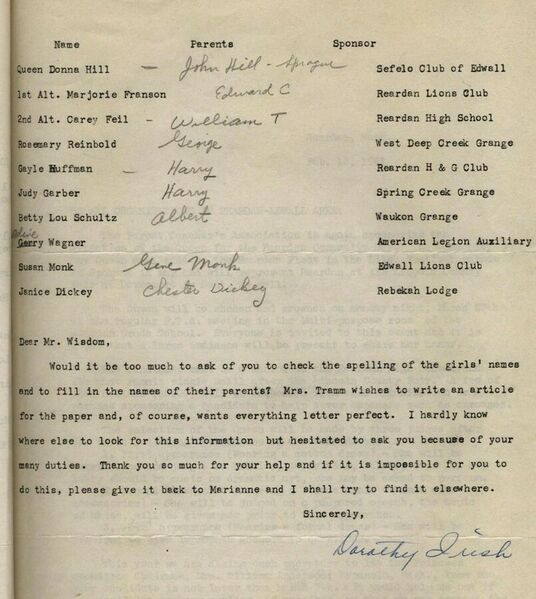 Name Parents Sponsor
Queen Donna Hill — John Hill - Sprague Sefelo Club of Edwall
1st Alt. Marjorie Franson Edward C Reardan Lions Club
2nd Alt. Carey Feil - William T Reardan High School
Rosemary Reinbold George West Deep Creek Grange
Gayle Huffman — Harry Reardan H & G Club
Judy Garber Harry Spring Creek Grange
Betty Lou Schultz Albert Waukon Grange
Wagner American Legion Auxiliary
Susan Monk Gene Monk Edwall Lions Club
Janice Dickey Chester Dickey Rebekah Lodge
Dear Mr. Wisdom,
Would it be too much to ask of you to check the spelling of the girls' names
and to fill in the names of their parents? Mrs. Tramm wishes to write an article
for the paper and, of course, wants everything letter perfect. I hardly know
where else to look for this information but hesitated to ask you because of your
many duties. Thank you so much for your help and if it is impossible for you to
do this, please give it back to Marianne and I shall try to find it elsewhere.
Sincerely,
Dorothy Irish